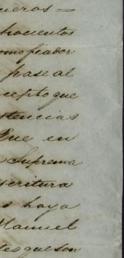 ueros =
hocientos
omo fiador
phase al
cepto que
stencias
Que en
Suprema
scritura
s haya
Manuel
tes que son